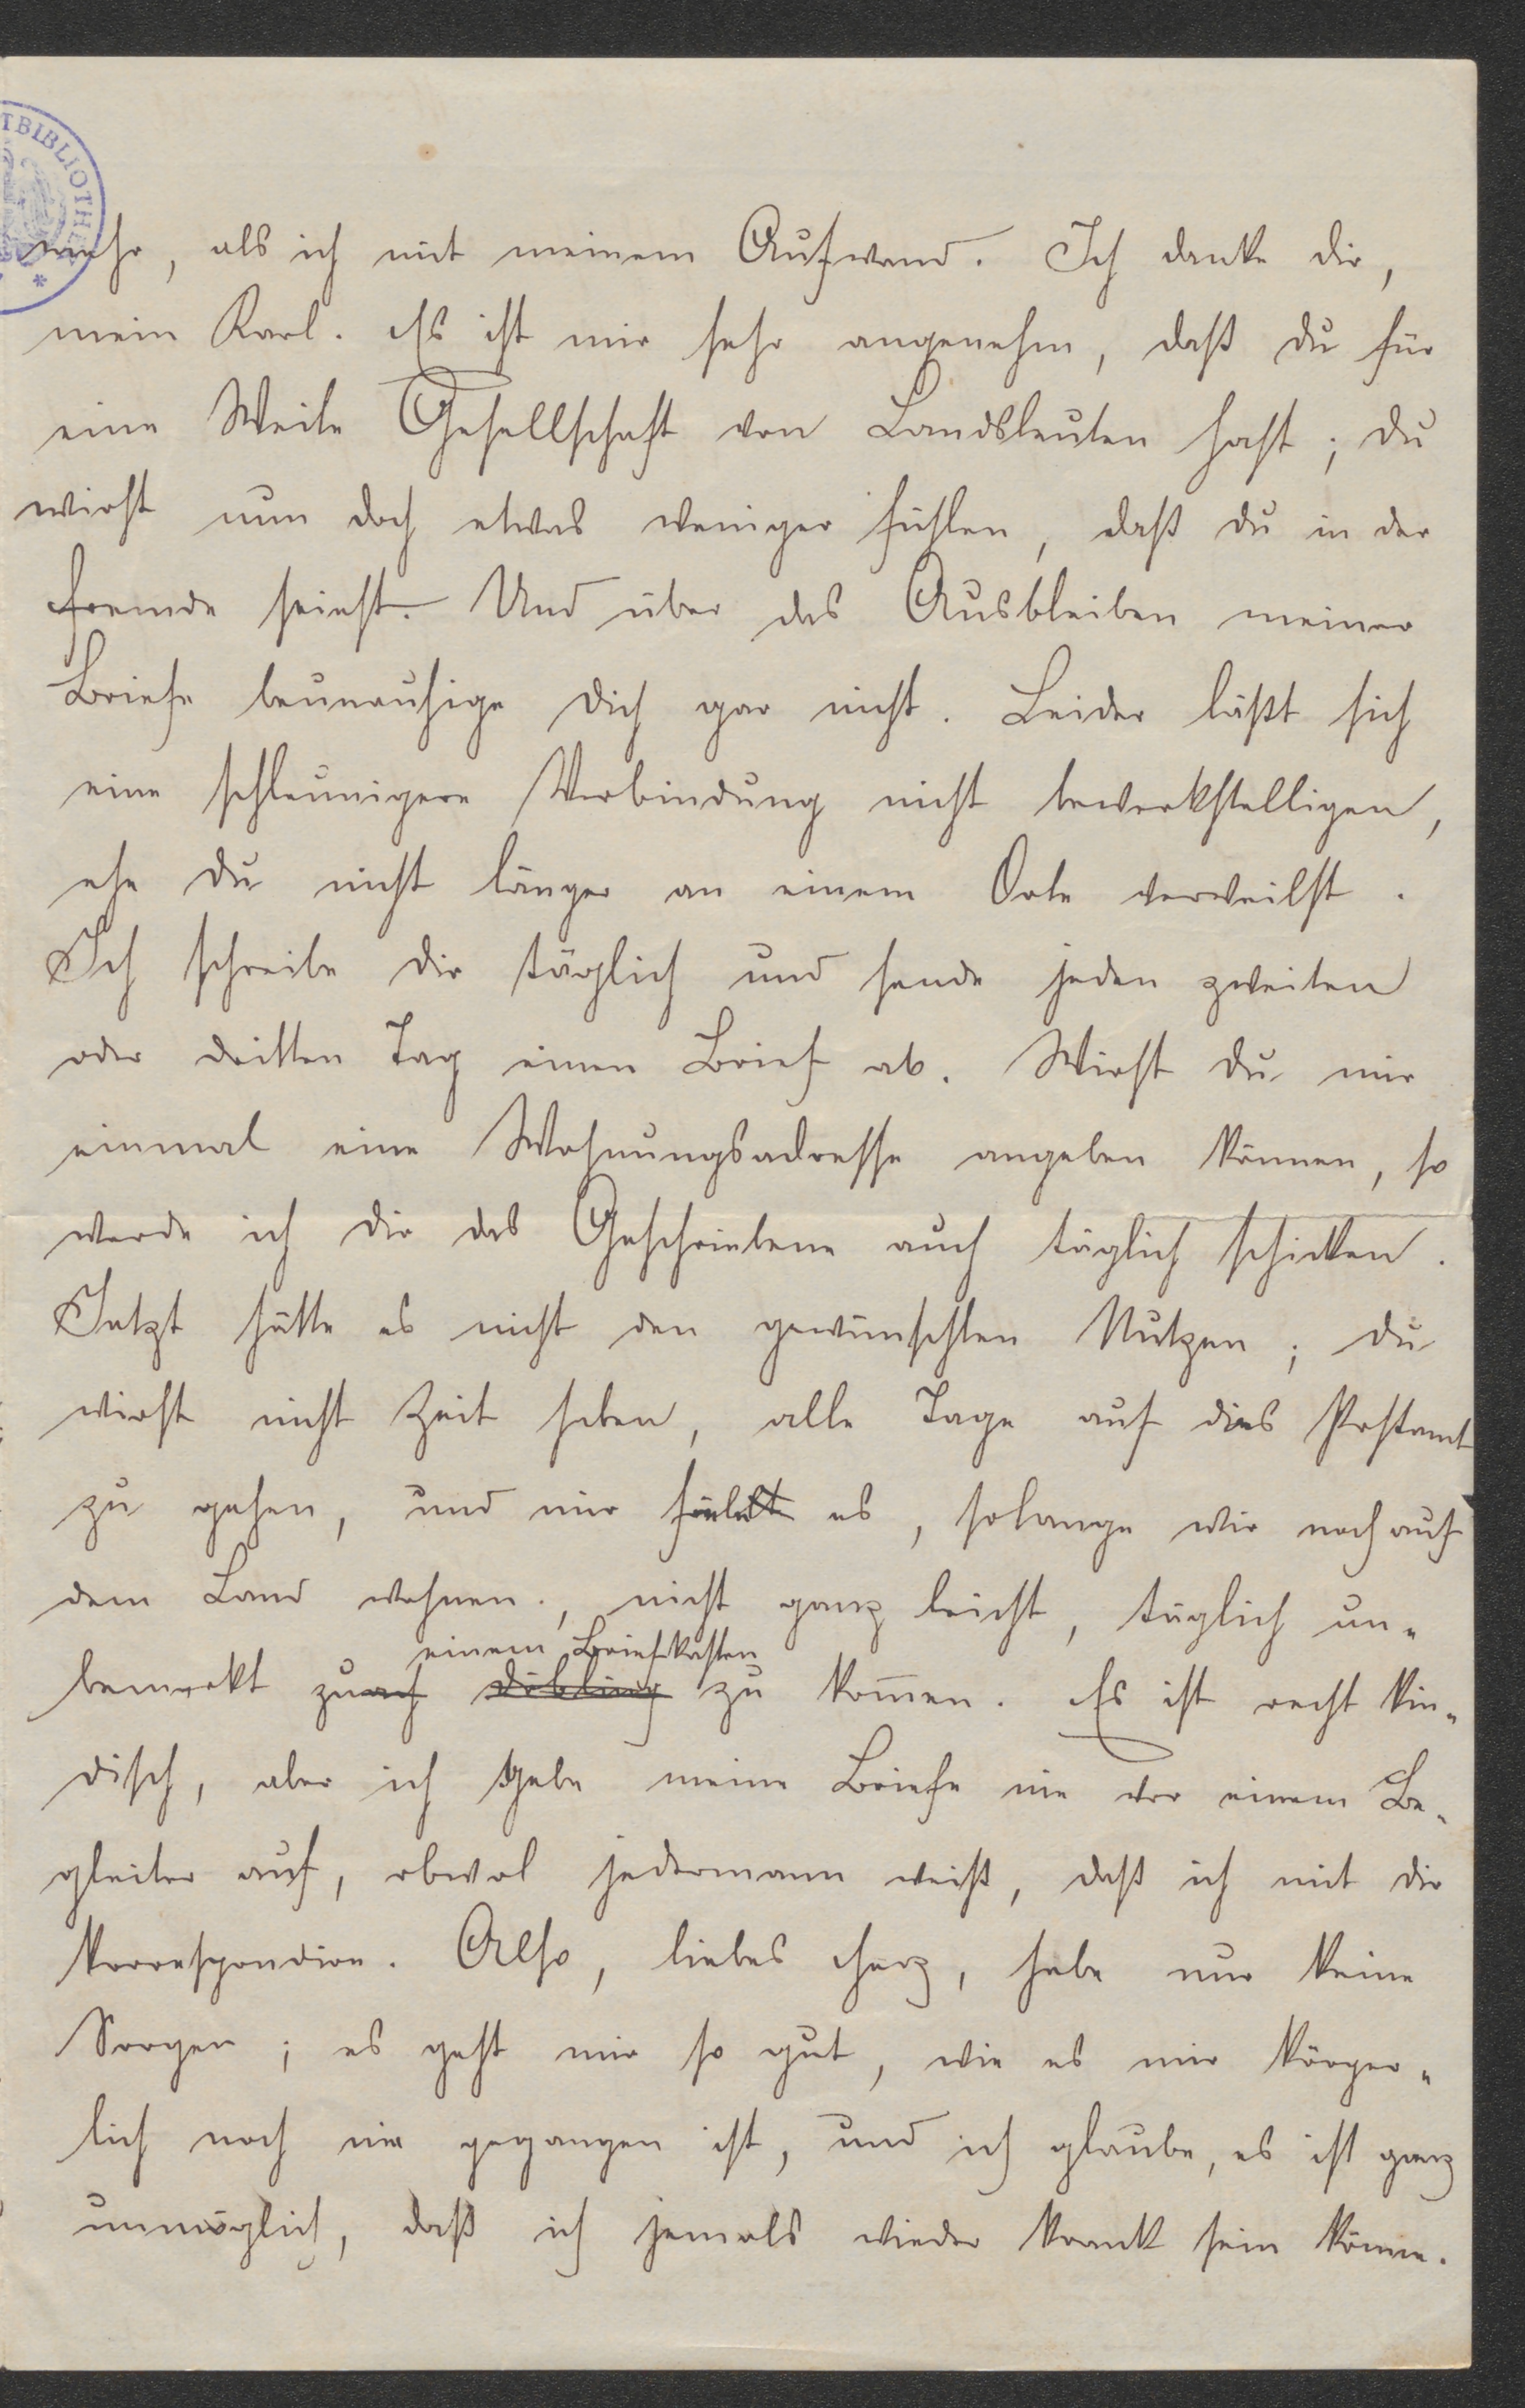 TBIBLIOTHEK
mehr, als ich mit meinem Aufwand. Ich danke dir,
mein Karl. Es ist mir sehr angenehm, daß du für
eine Weile Gesellschaft von Landsleuten hast; du
wirst nun doch etwas weniger fühlen, daß du in der
Fremde seiest. Und über das Ausbleiben meiner
Briefe beunruhige dich gar nicht. Leider läßt sich
eine schleunigere Verbindung nicht bewerkstelligen,
ehe du nicht länger an einem Orte verweilst.
Ich schreibe dir täglich und sende jeden zweiten
oder dritten Tag einen Brief ab. Wirst du mir
einmal eine Wohnungsadresse angeben können, so
werde ich dir das Geschriebene auch täglich schicken.
Jetzt hätte es nicht den gewünschten Nutzen; du
wirst nicht Zeit haben, alle Tage auf das Postamt
zu gehen, und mir fällt es, solange wir noch auf
dem Land wohnen, nicht ganz leicht, täglich un-
einem Briefkasten
bemerkt zu Döbling zu kommen. Es ist recht kin-
disch, aber ich gebe meine Briefe nie vor einem Be-
gleiter auf, obwol jedermann weiß, daß ich mit dir
korrespondire. Also, liebes Herz, habe nur keine
Sorgen; es geht mir so gut, wie es mir körper-
lich noch nie gegangen ist, und ich glaube, es ist ganz
unmöglich, daß ich jemals wieder krank sein könne.